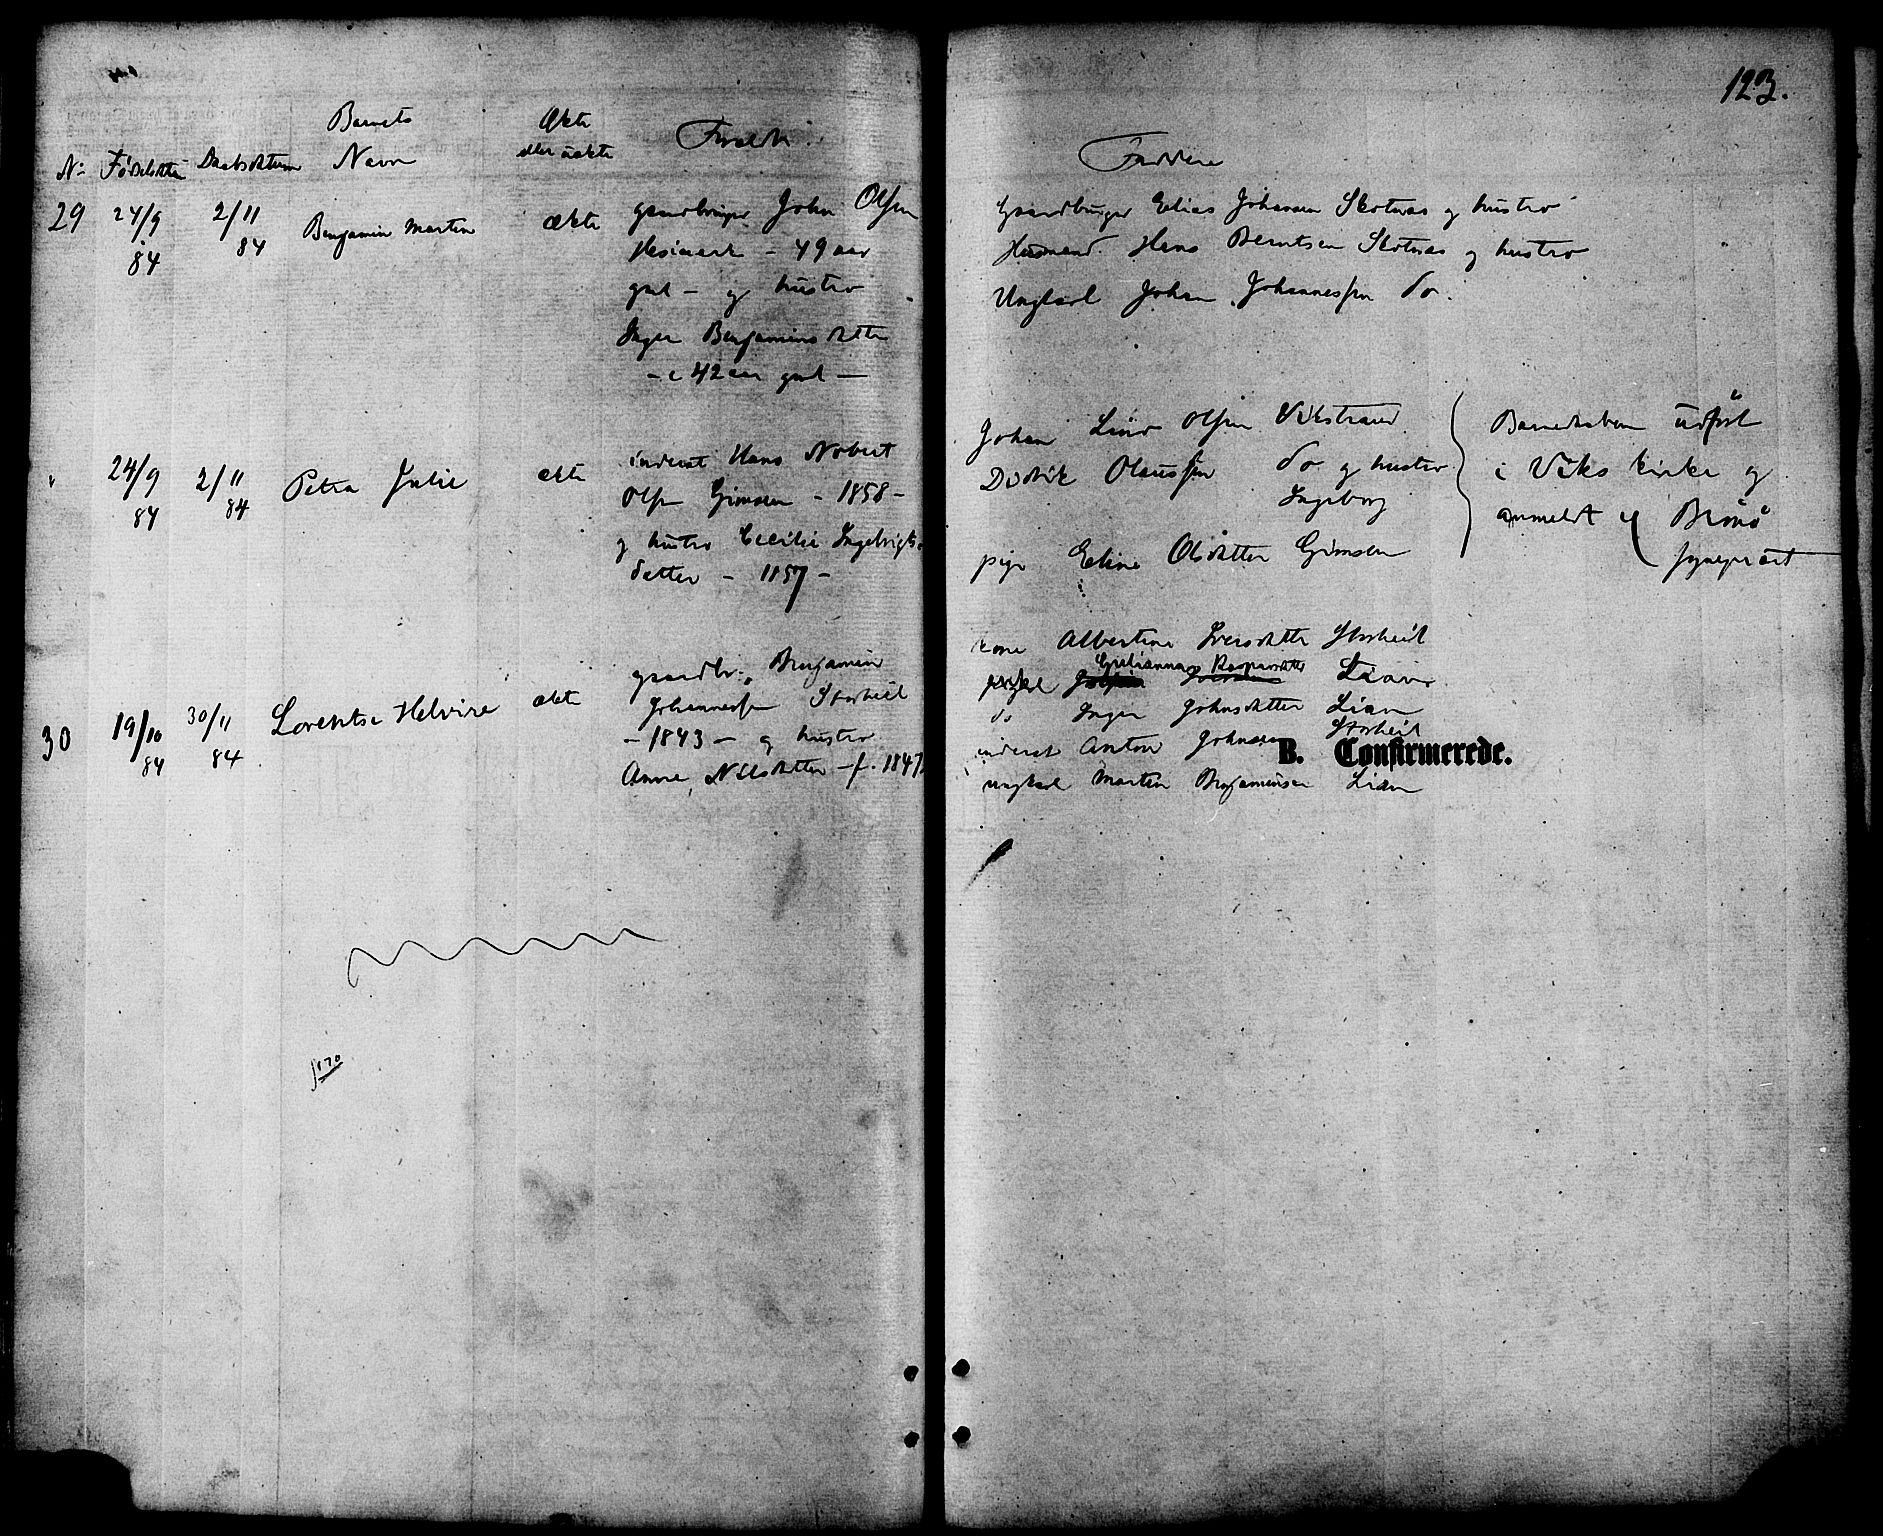 123.
Barnets Ækte
N: Daabsdatum Navn eller uækte Faddere
29 24/9 84 2/11 84 Benjamin Martin ækte
John Olsen
- 49 aar
gml - og hustru
Inger Benjaminsdatter
- c 42 aar gml -
Gaardbruger Elias Johansen Skotnes og hustru
Husmand Hans Berntsen Skotnes og hustru
Ungkarl Johan Johannessen do.
" 24/9 84 2/11 84 Petra Julie ækte
inderst Hans Nobert
Olsen Gimsen - 1858 -
og hustru Cecilie Ingebrigts-
datter - 1857 -
Johan Olsen Vikstrand
Didrik Olaussen do og hustru
Ingeborg
pige Eline Olsdatter Gimsen
Barnedaaben udført
i Viks kirke og
anmeldt Brønø
sogneprest
30 19/10 84 30/11 84 Lorentse Helvire ækte
gaardbr. Benjamin
Johannessen Storheil
- 1843 - og hustru
Anne Nilsdatter - f. 1847
kone Albertine Iversdatter Storheil
Gulianna Kaspersdatter
do Inger Johnsdatter Lian
Storheil
inderst Anton Johnsen
ungkarl Martin Benjaminsen Lian
B. Confirmerede.
1870